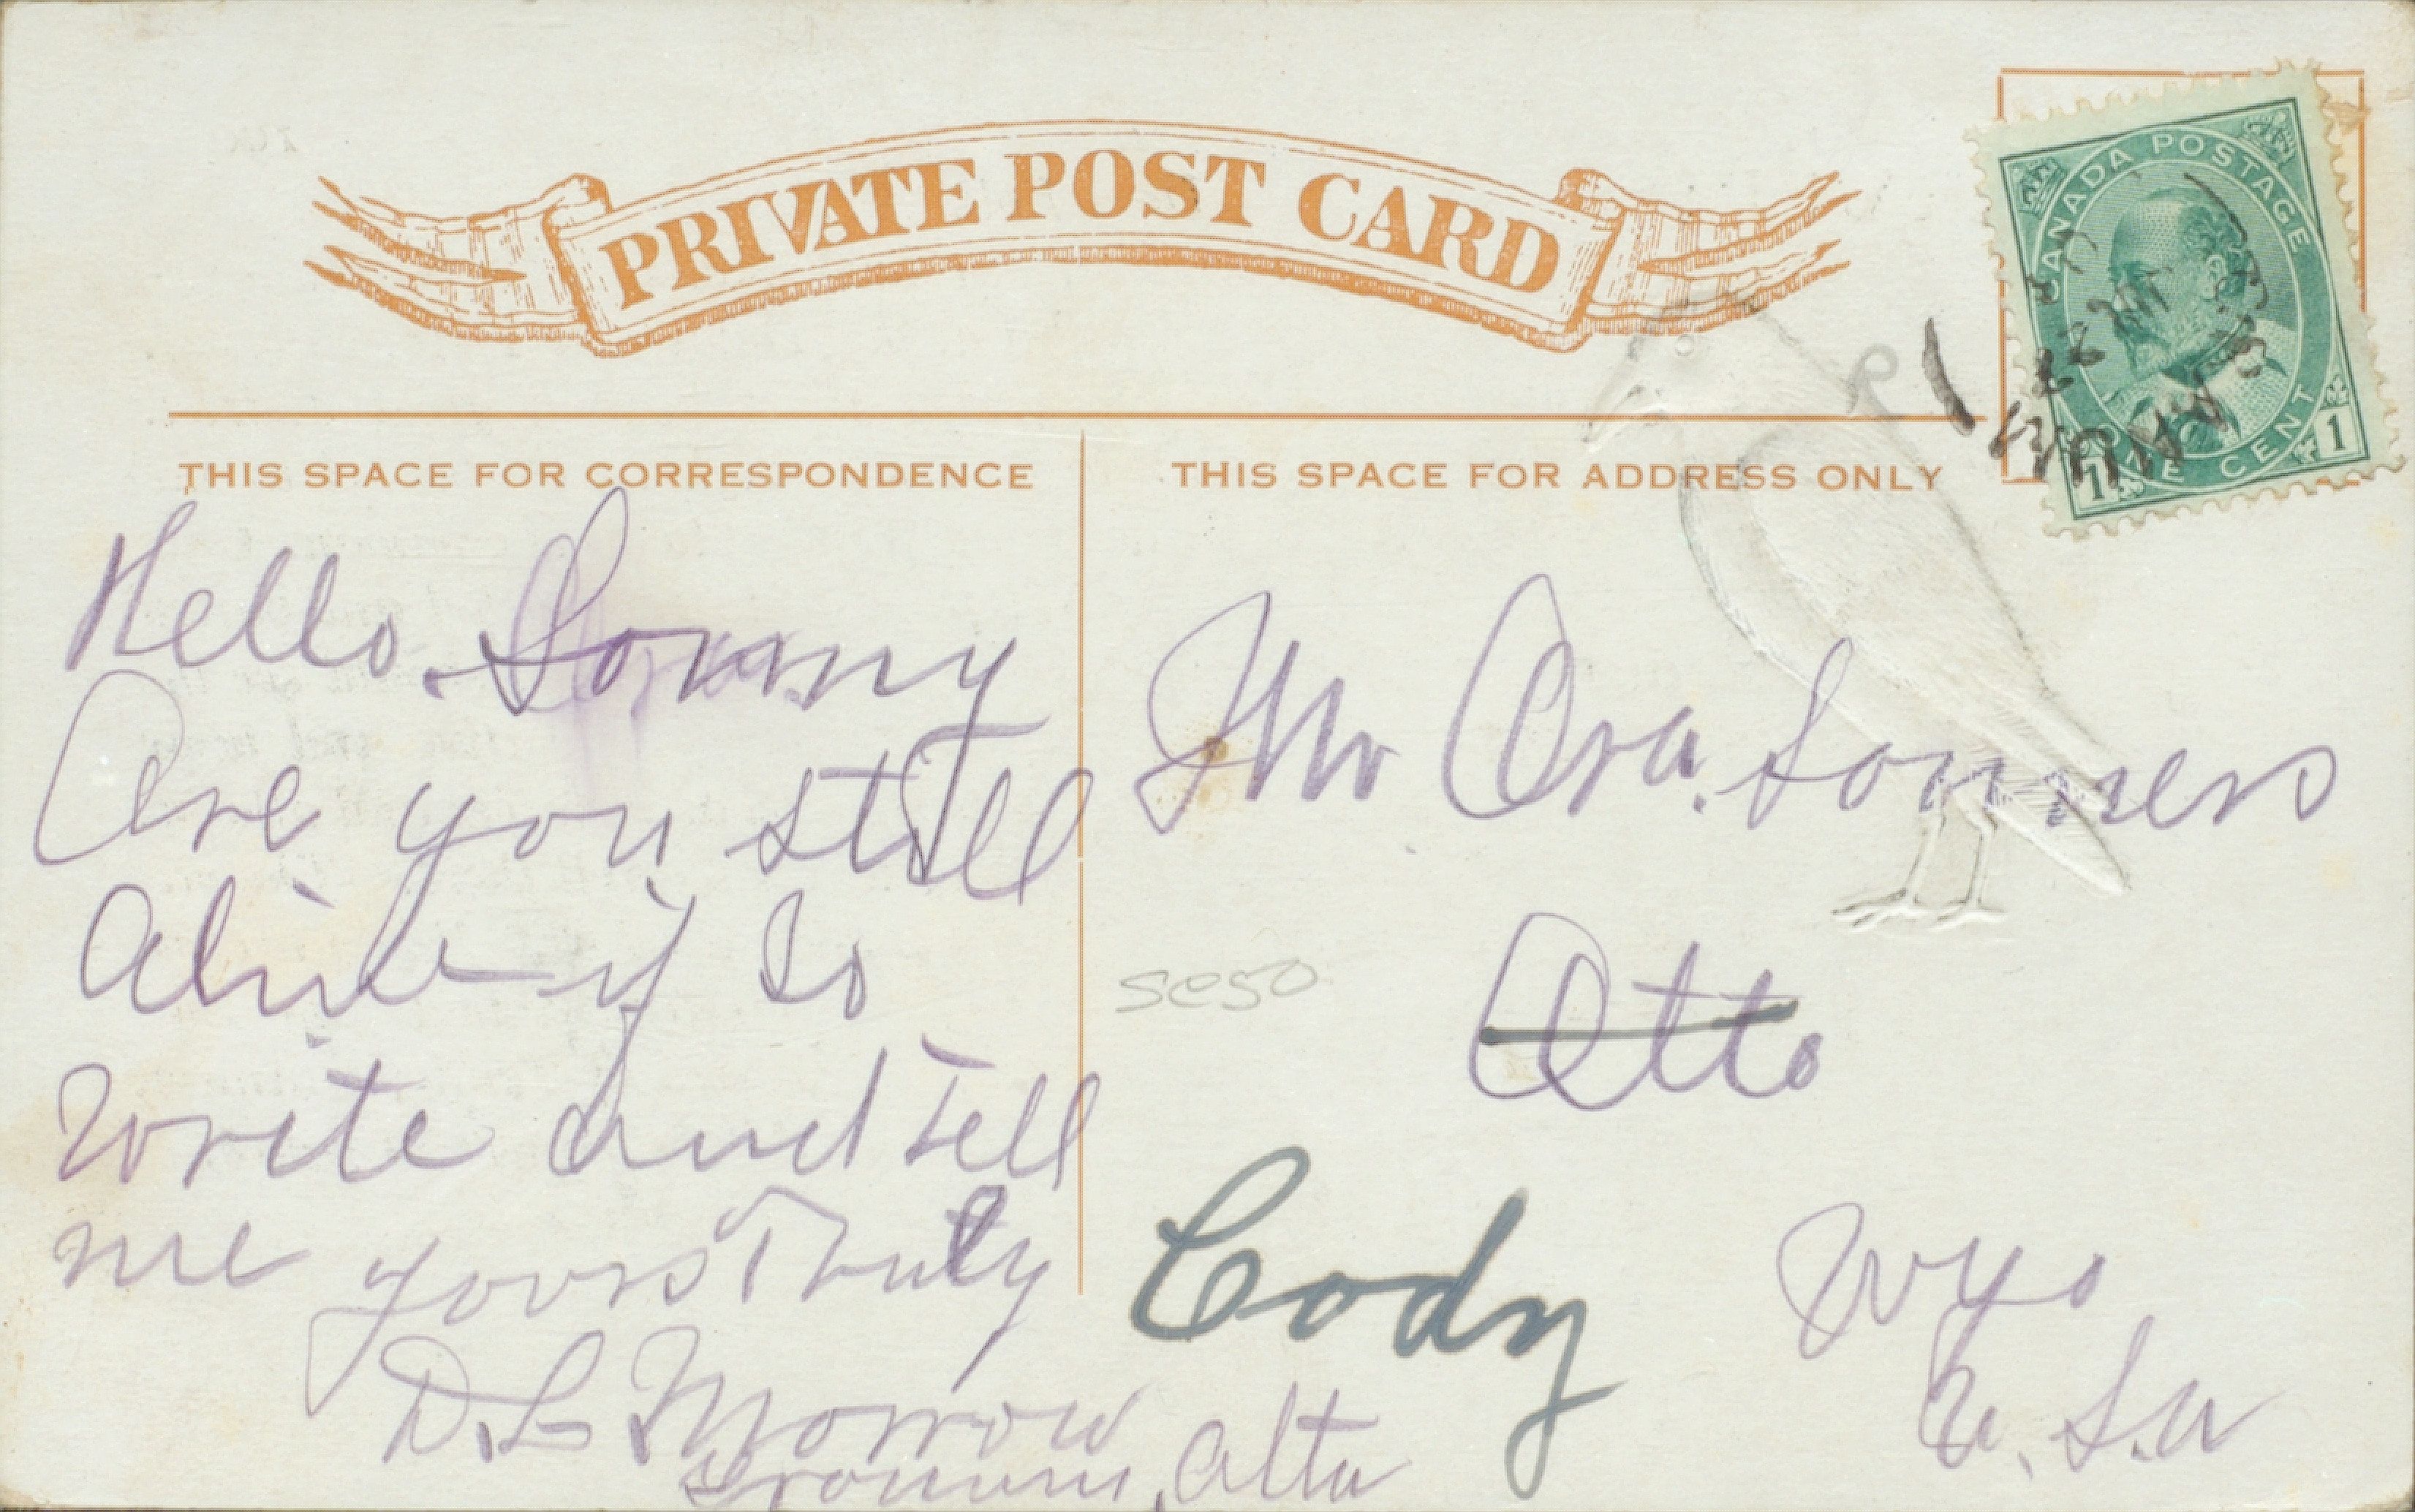 PRIVATE POST CARD
CANADA POSTAGE
ONE CENT
1 1
THIS SPACE FOR CORRESPONDENCE
Hello Sonny
Are you still
Alive if So
Write and Tell
me yours Truly
D. L. Morrow
Alta
THIS SPACE FOR ADDRESS ONLY
Mr Ora. Sonners
Otto
Cody Wyo
U.S.A